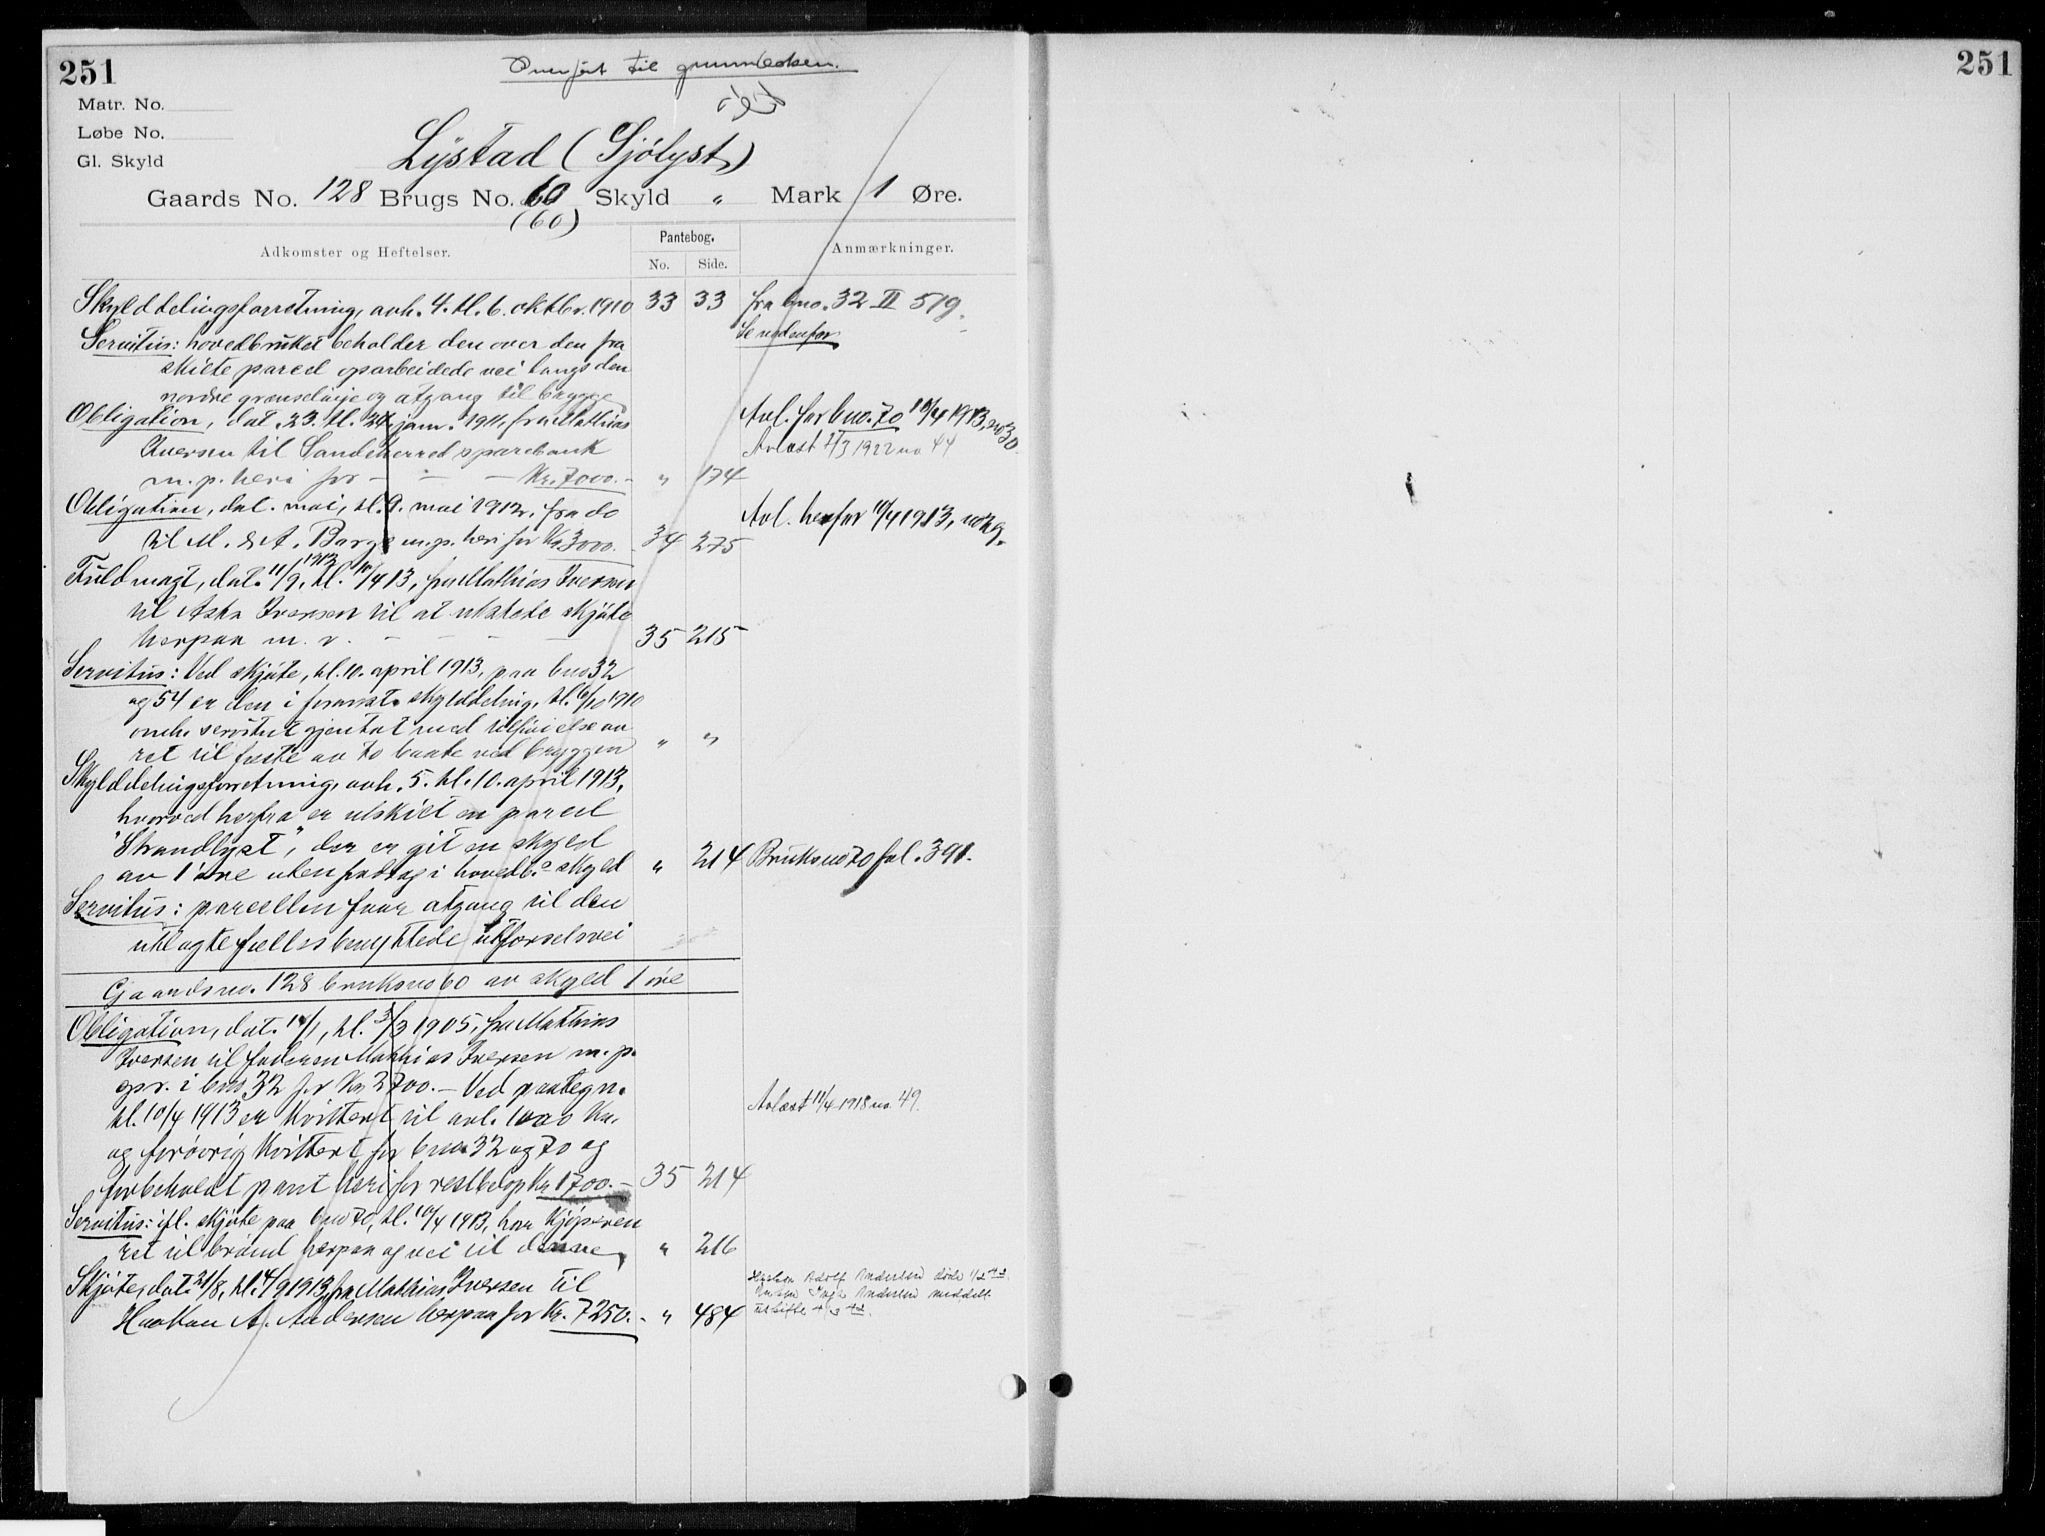 251
251
Overført til grunnboken.
Matr. No.
Løbe No.
Gl. Skyld
Lystad (Sjölyst)
Gaards No. 128 Brugs No. 60 Skyld " Mark 1 Øre.
(60)
Adkomster og Heftelser.
Pantebog.
No. Side.
Anmærkninger.
Skylddelingsforretning, avh. 4. tl. 6. oktbr. 1910 33 33 fra bno. 32 II 519.
Se nedenfor
Servitus: hovedbruket beholder den over den fra
skilte parcel oparbeidede vei langs den
nordre grænselinje og atgang til brygge
Obligation, dat. 23. tl. 24 jan. 1911, fra Mathias Avl. for bno. 70 10/4 1913, no 30
Iversen til Sandeherred sparebank Avlæst 2/3 1922 no 44
m. p. heri for - - - Kr. 7000.- " 174
Obligation, dat. mai, tl. 9. mai 1912, fra do Avl. herfor 10/4 1913, no 29.
til M. & A. Barge m. p. heri for Kr 3000. - 34 275
Fuldmagt, dat. 11/9, 1912 tl. 10/4 13, fra Mathias Iversen
til Iversen til at utstede skjöte
herpaa m. v. - - - - 35 215
Servitus: Ved skjöte, tl. 10. april 1913, paa bno 32
og 54 er den i foranst. skylddeling, tl. 6/10 1910
omh. servitut gjentat med tilföielse av
ret til fæste av to baate ved bryggen " "
Skylddelingsforretning, avh. 5. tl. 10. april 1913,
hvorved herfra er utskilt en parcel
"Strandlyst", der er git en skyld
av 1 öre uten fradrag i hovedb.s skyld " 214 Bruksno 70 fol. 391.
Servitus: parcellen faar atgang til den
utlagte fælles benyttede utförselsvei
Gaardsno. 128 bruksno 60 av skyld 1 öre
Obligation, dat. 14/1, tl. 3/3 1905, fra Mathias
Iversen til faderen Mathias Iversen m. p.
opr. i bno 32 for Kr 2700. - Ved paategn.
tl. 10/4 1913 er kvittert til avl. 1000 Kr. Avlæst 11/4 1918 no. 49.
og forövrig kvittert for bno. 32 og 70 og
forbeholdt pant heri for restbelöp Kr 1700. - 35 214
Servitus: ifl. skjöte paa bno 70, tl. 10/4 1913, har kjöperen
ret til brönd herpaa og vei til denne, " 216
Skjöte, dat. 21/8, tl. 4/9 1913, fra Mathias Iversen til
Haakon A. Andersen herpaa for Kr. 7250. - " 484
Haakon Adolf Andersen døde 1/2 42.
Enken Inga Andersen meddelt
uskifte